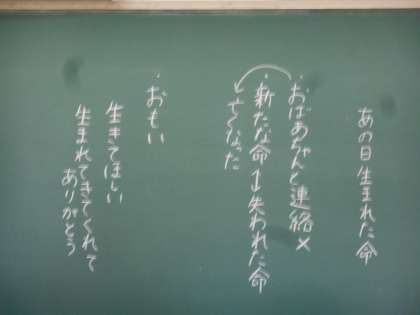 あの日生まれた命
・おばあちゃんと連絡×
・新たな命↕失われた命
亡くなった
・おもい
生きてほしい
生まれてきてくれて
ありがとう